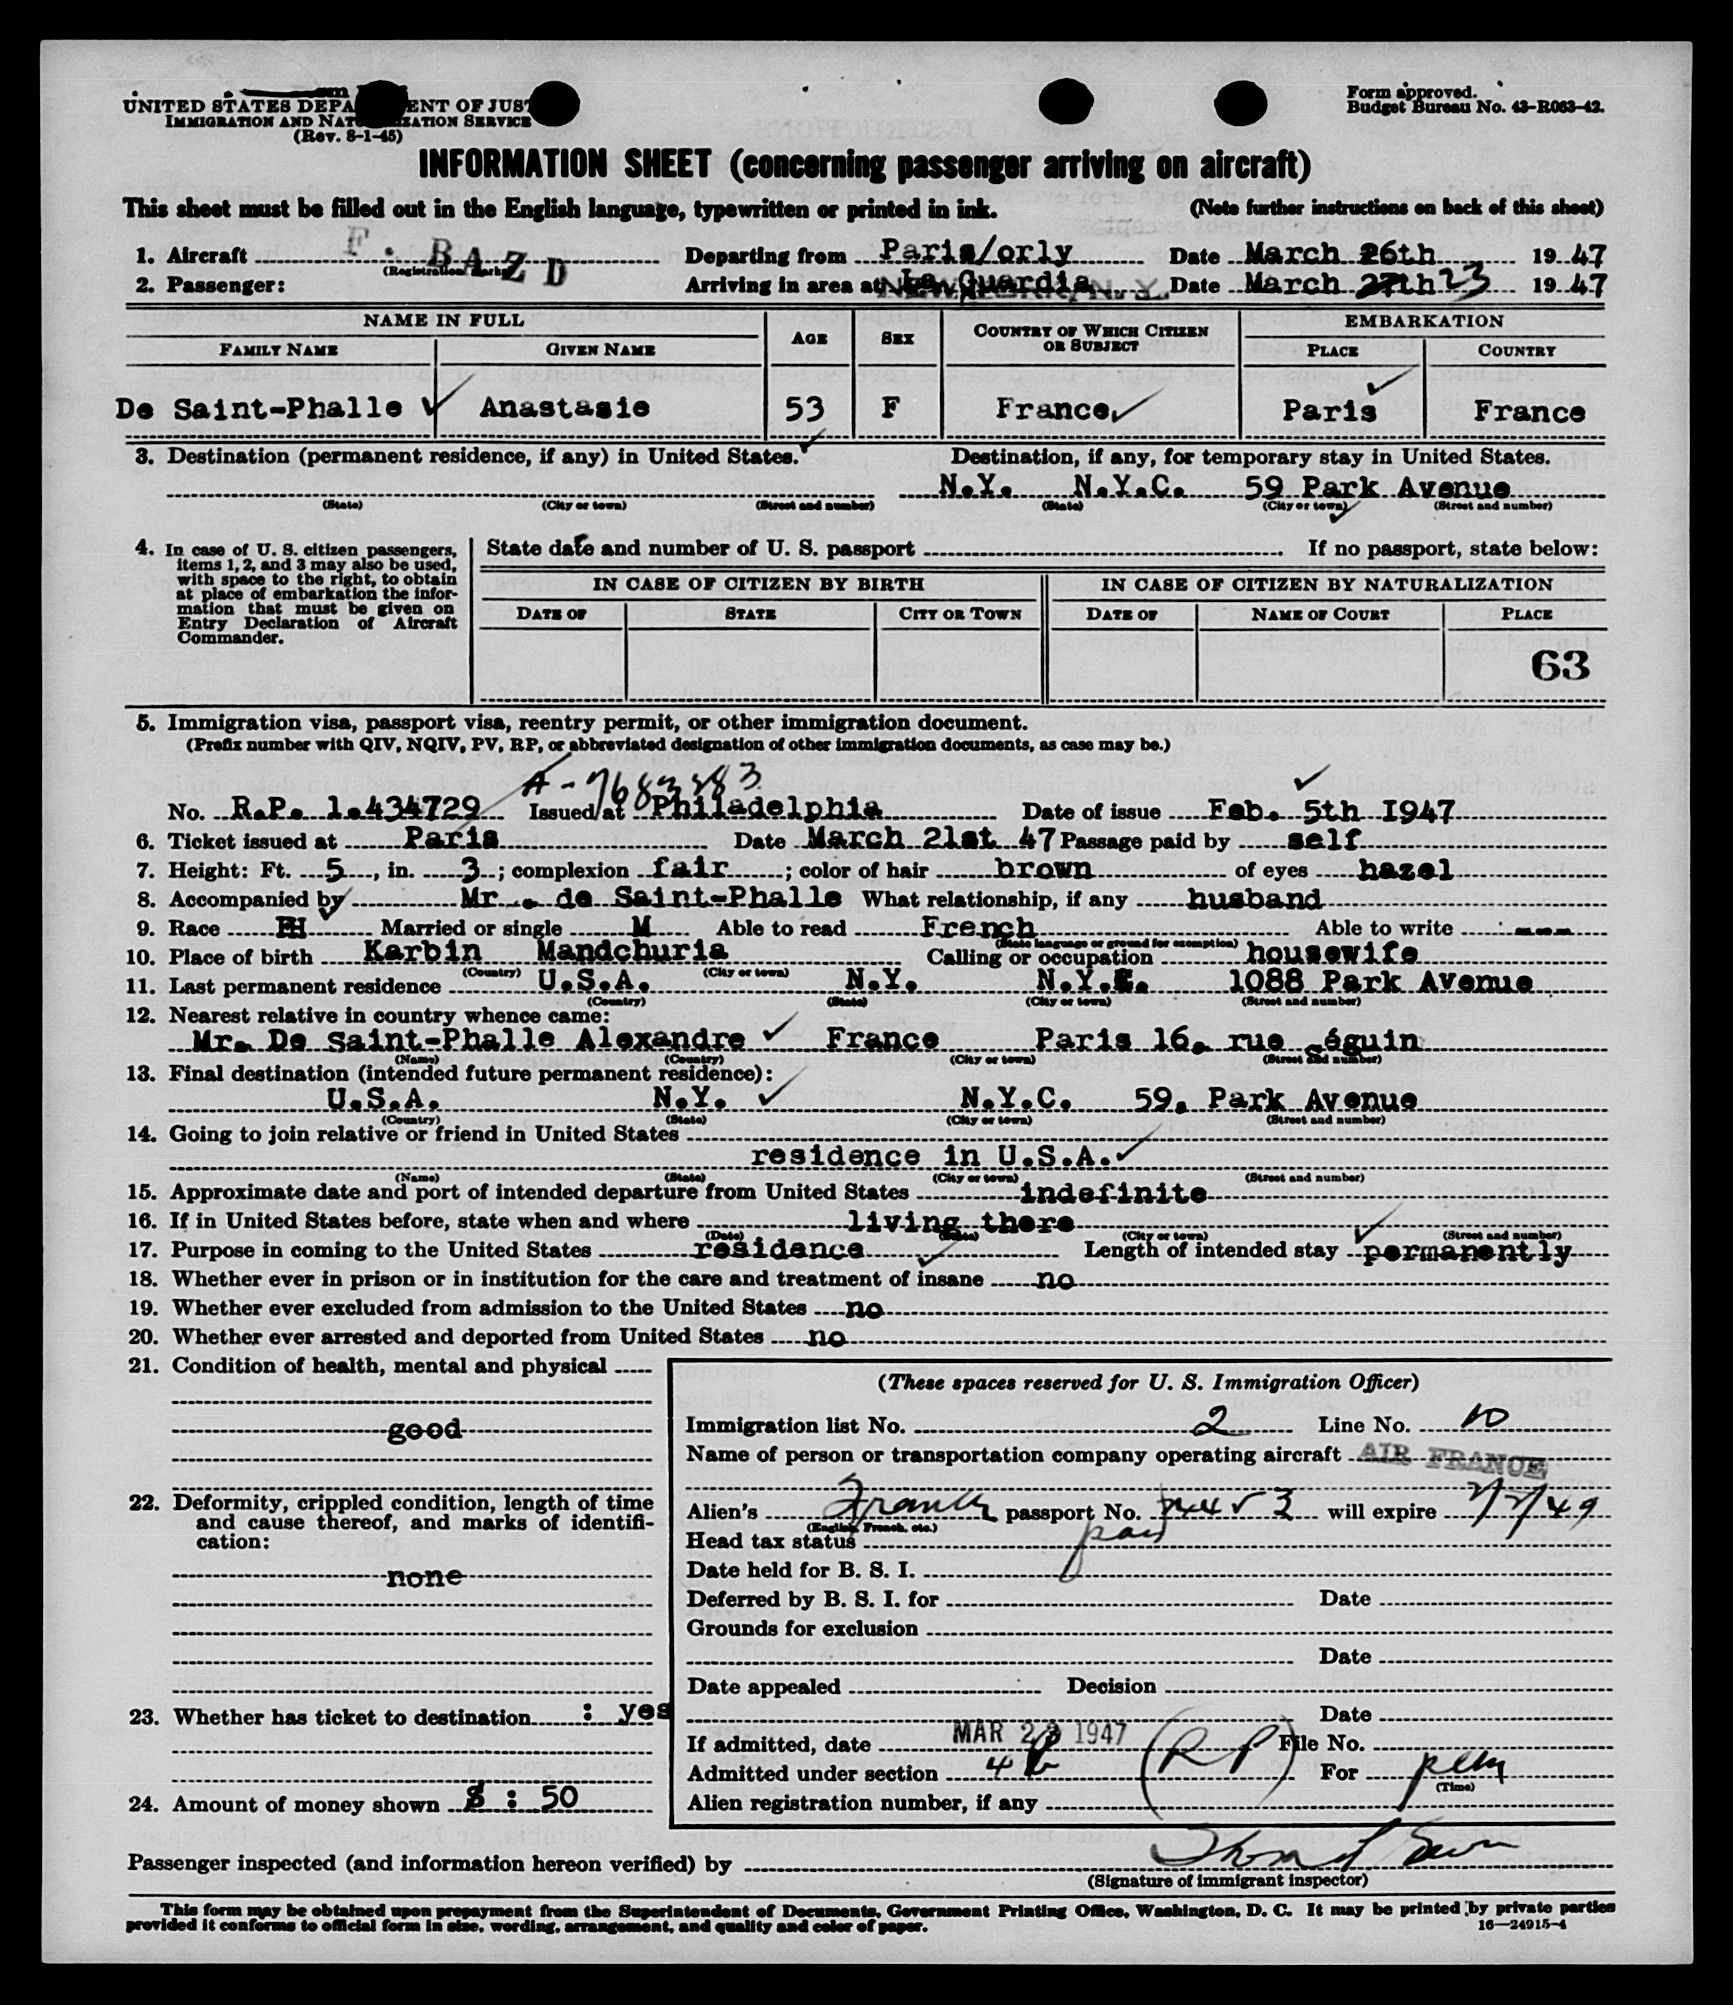 UNITED STATES DEPA ENT OF JUST
IMMIGRATION AND NAT IZATION SERVICE
(Rev. 8-1-45)
Form approved.
Budget Bureau No. 43-R063-42.
INFORMATION SHEET (concerning passenger arriving on aircraft)
This sheet must be filled out in the English language, typewritten or printed in ink. (Note further instructions on back of this sheet)
1. Aircraft F. BAZD Departing from Paris/orly Date March 26th 1947
(Registration marks)
2. Passenger: Arriving in area at La Guardia NEW YORK, N.Y. Date March 27th 23 1947
NAME IN FULL AGE SEX COUNTRY OF WHICH CITIZEN OR SUBJECT EMBARKATION
FAMILY NAME GIVEN NAME PLACE COUNTRY
De Saint-Phalle Anastasie 53 F France Paris France
3. Destination (permanent residence, if any) in United States. Destination, if any, for temporary stay in United States.
N.Y. N.Y.C. 59 Park Avenue
(State) (City or town) (Street and number) (State) (City or town) (Street and number)
4. In case of U. S. citizen passengers, items 1, 2, and 3 may also be used, with space to the right, to obtain at place of embarkation the information that must be given on Entry Declaration of Aircraft Commander.
State date and number of U. S. passport If no passport, state below:
IN CASE OF CITIZEN BY BIRTH IN CASE OF CITIZEN BY NATURALIZATION
DATE OF STATE CITY OR TOWN DATE OF NAME OF COURT PLACE
63
5. Immigration visa, passport visa, reentry permit, or other immigration document.
(Prefix number with QIV, NQIV, PV, RP, or abbreviated designation of other immigration documents, as case may be.)
A-7683283
No. R.P. 1.434729 Issued at Philadelphia Date of issue Feb. 5th 1947
6. Ticket issued at Paris Date March 21st 47 Passage paid by self
7. Height: Ft. 5, in. 3; complexion fair; color of hair brown of eyes hazel
8. Accompanied by Mr. de Saint-Phalle What relationship, if any husband
9. Race Married or single M Able to read French Able to write ---
(State language or ground for exemption)
10. Place of birth Karbin Mandchuria Calling or occupation housewife
(Country) (City or town)
11. Last permanent residence U.S.A. N.Y. N.Y.C. 1088 Park Avenue
(Country) (State) (City or town) (Street and number)
12. Nearest relative in country whence came:
Mr. De Saint-Phalle Alexandre France Paris 16, rue Séguin
(Name) (Country) (City or town) (Street and number)
13. Final destination (intended future permanent residence):
U.S.A. N.Y. N.Y.C. 59, Park Avenue
(Country) (State) (City or town) (Street and number)
14. Going to join relative or friend in United States
residence in U.S.A.
(Name) (State) (City or town) (Street and number)
15. Approximate date and port of intended departure from United States indefinite
16. If in United States before, state when and where living there
(Date) (State) (City or town) (Street and number)
17. Purpose in coming to the United States residence Length of intended stay permanently
18. Whether ever in prison or in institution for the care and treatment of insane no
19. Whether ever excluded from admission to the United States no
20. Whether ever arrested and deported from United States no
21. Condition of health, mental and physical
good
22. Deformity, crippled condition, length of time and cause thereof, and marks of identification:
none
23. Whether has ticket to destination : yes
24. Amount of money shown $ : 50
(These spaces reserved for U. S. Immigration Officer)
Immigration list No. 2 Line No. 10
Name of person or transportation company operating aircraft AIR FRANCE
Alien's French passport No. will expire 2/7/49
(English, French, etc.)
Head tax status paid
Date held for B. S. I.
Deferred by B. S. I. for Date
Grounds for exclusion
Date
Date appealed Decision
Date
If admitted, date MAR 23 1947 File No.
Admitted under section 4 b (RP) For perm
(Time)
Alien registration number, if any
Passenger inspected (and information hereon verified) by
(Signature of immigrant inspector)
This form may be obtained upon prepayment from the Superintendent of Documents, Government Printing Office, Washington, D. C. It may be printed by private parties
provided it conforms to official form in size, wording, arrangement, and quality and color of paper.
16—24915-4